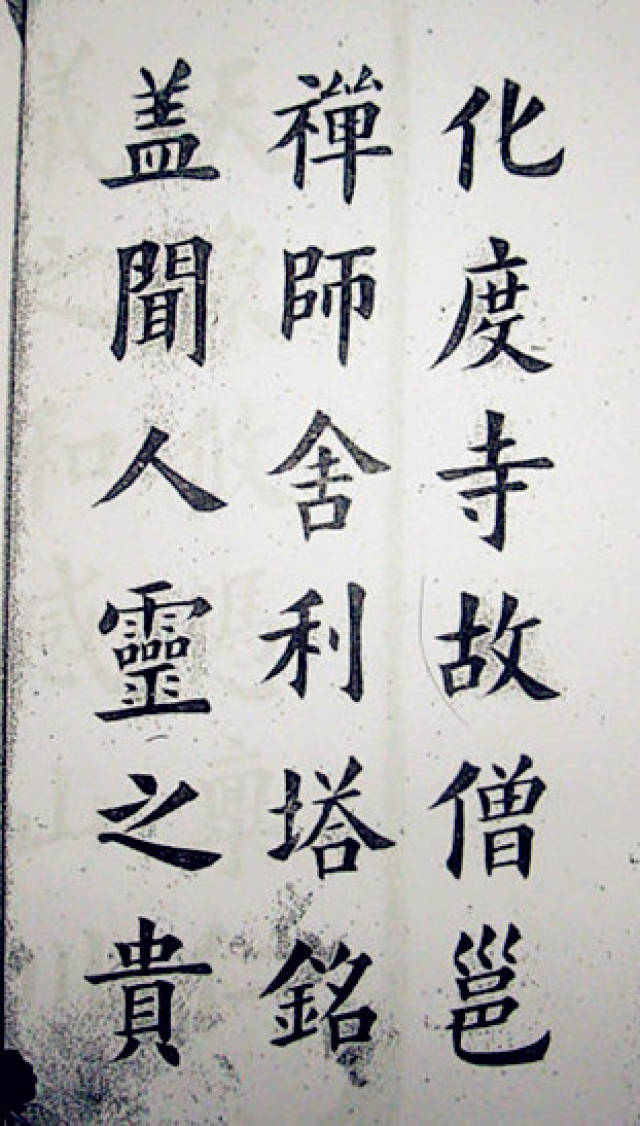 化度寺故僧邕
禪師舍利塔銘
蓋聞人靈之貴